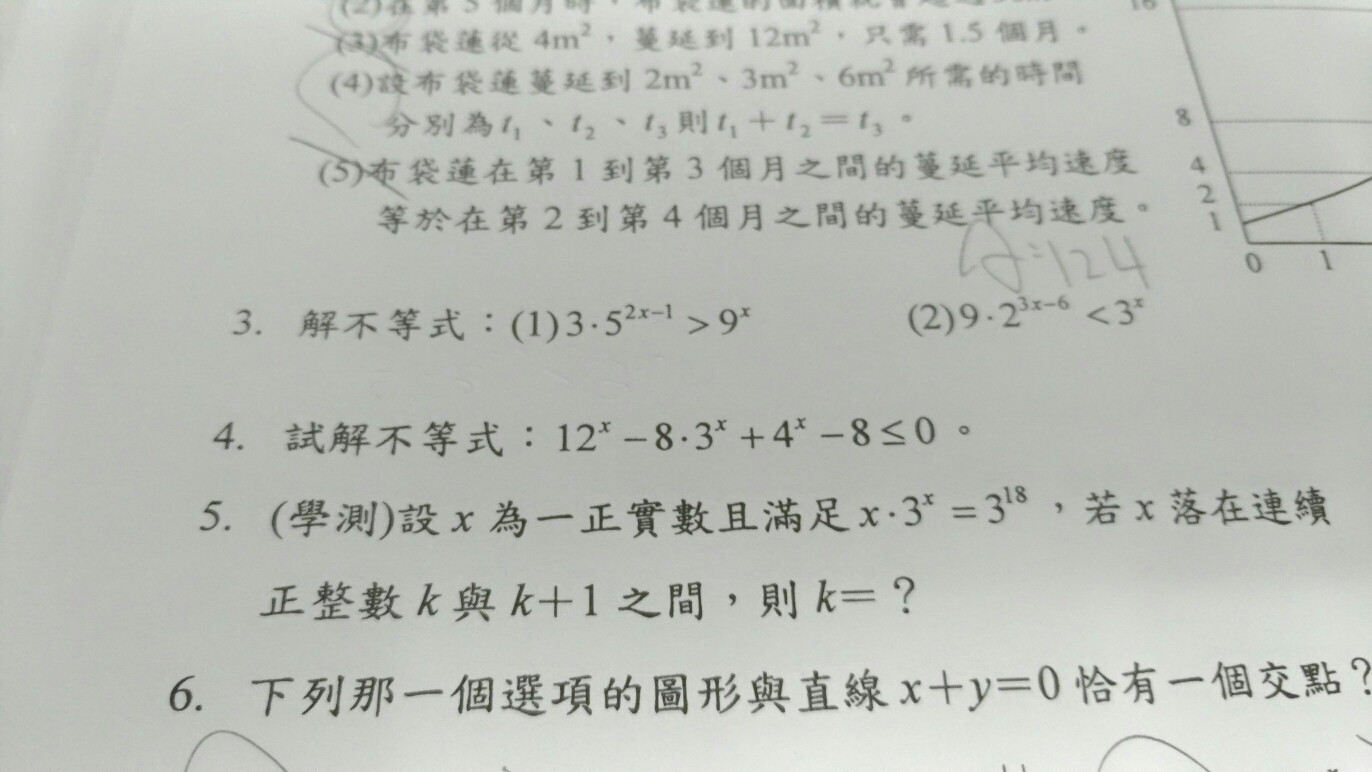 (3)布袋蓮從 4m²，蔓延到 12m²，只需 1.5 個月。
(4)設布袋蓮蔓延到 2m²、3m²、6m² 所需的時間
分別為 t₁、t₂、t₃ 則 t₁ + t₂ = t₃。
(5)布袋蓮在第 1 到第 3 個月之間的蔓延平均速度
等於在第 2 到第 4 個月之間的蔓延平均速度。
A:124
16
8
4
2
1
0 1
3. 解不等式：(1)3·5²ˣ⁻¹ > 9ˣ (2)9·2³ˣ⁻⁶ < 3ˣ
4. 試解不等式：12ˣ − 8·3ˣ + 4ˣ − 8 ≤ 0。
5. (學測)設 x 為一正實數且滿足 x·3ˣ = 3¹⁸，若 x 落在連續
正整數 k 與 k+1 之間，則 k=？
6. 下列那一個選項的圖形與直線 x+y=0 恰有一個交點？